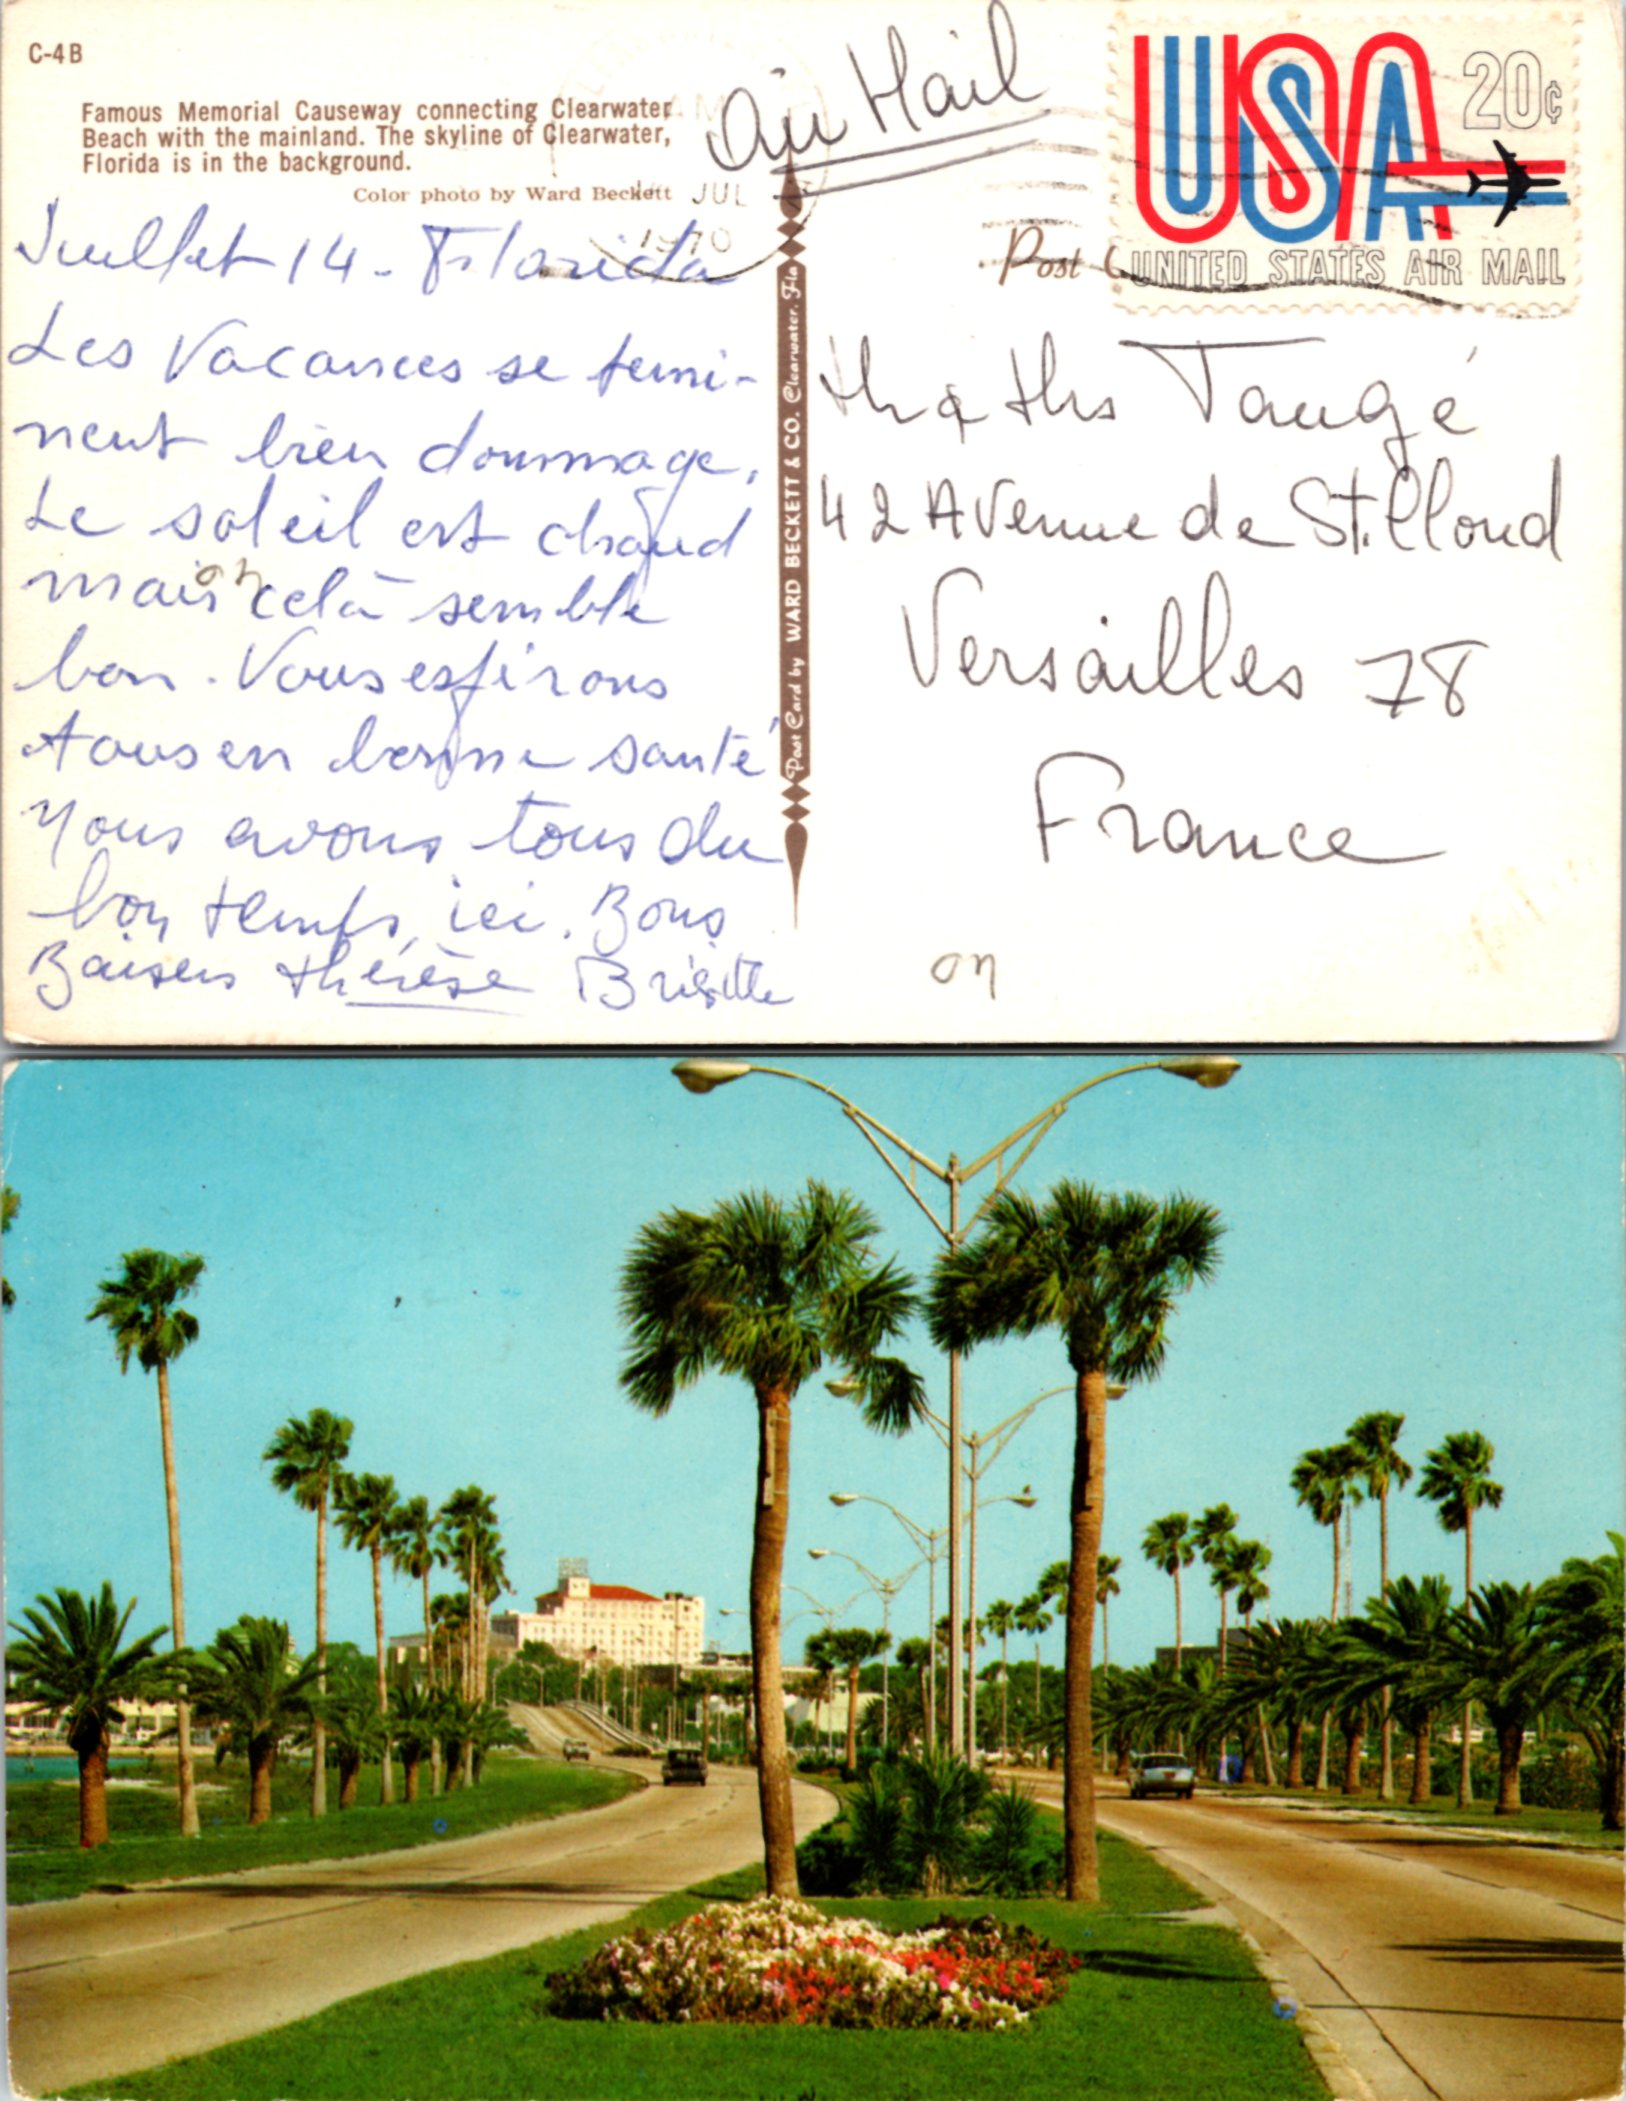 C-4B
Famous Memorial Causeway connecting Clearwater
Beach with the mainland. The skyline of Clearwater,
Florida is in the background.
Color photo by Ward Beckett
Air Mail
AM
JUL
1970
USA 20c
UNITED STATES AIR MAIL
Post
Juillet 14 - Florida
Les Vacances se termi-
nent bien dommage,
Le soleil est chaud
mais celà semble
bon. Vous espérons
tous en bonne santé
Nous avons tous du
bon temps, ici. Bons
Baisers thérèse Brigitte
Post Card by WARD BECKETT & CO. Clearwater, Fla
Taugé
42 Avenue de St. Cloud
Versailles 78
France
on